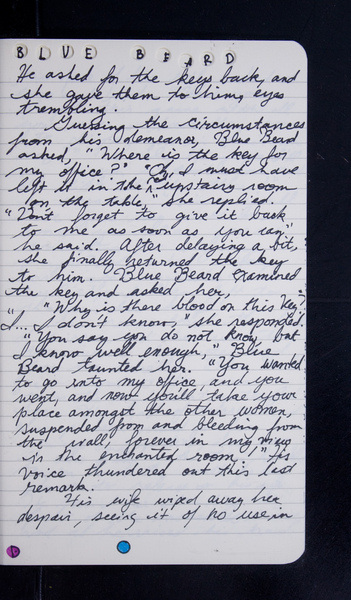 BLUE BEARD
He asked for the keys back, and
she gave them to him, eyes
trembling.
Guessing the circumstances
from his demeanor, Blue Beard
asked, "Where is the key for
my office?" "Oh, I must have
left it in the upstairs room
on the table," she replied.
"Don't forget to give it back
to me as soon as you can,"
he said. After delaying a bit,
she finally returned the key
to him. Blue Beard examined
the key and asked her,
"Why is there blood on this key?"
"I... I don't know, she responded.
"You say you do not know, but
I know well enough," Blue
Beard taunted her. "You wanted
to go into my office, and you
went, and now you'll take your
place amongst the other women,
suspended from and bleeding from
the wall forever in my
in the enchanted room!" His
voice thundered out this last
remark.
His wife wiped away her
despair, seeing it of no use in